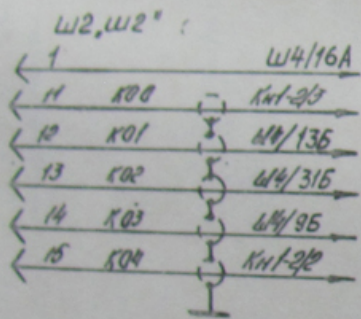 Ш2 „Ш2"
1 Ш4/16А
11 К00 Кн1-2/3
12 К01 Ш4/13Б
13 К02 Ш4/31Б
14 К03 Ш4/9Б
15 К04 Кн1-2/2